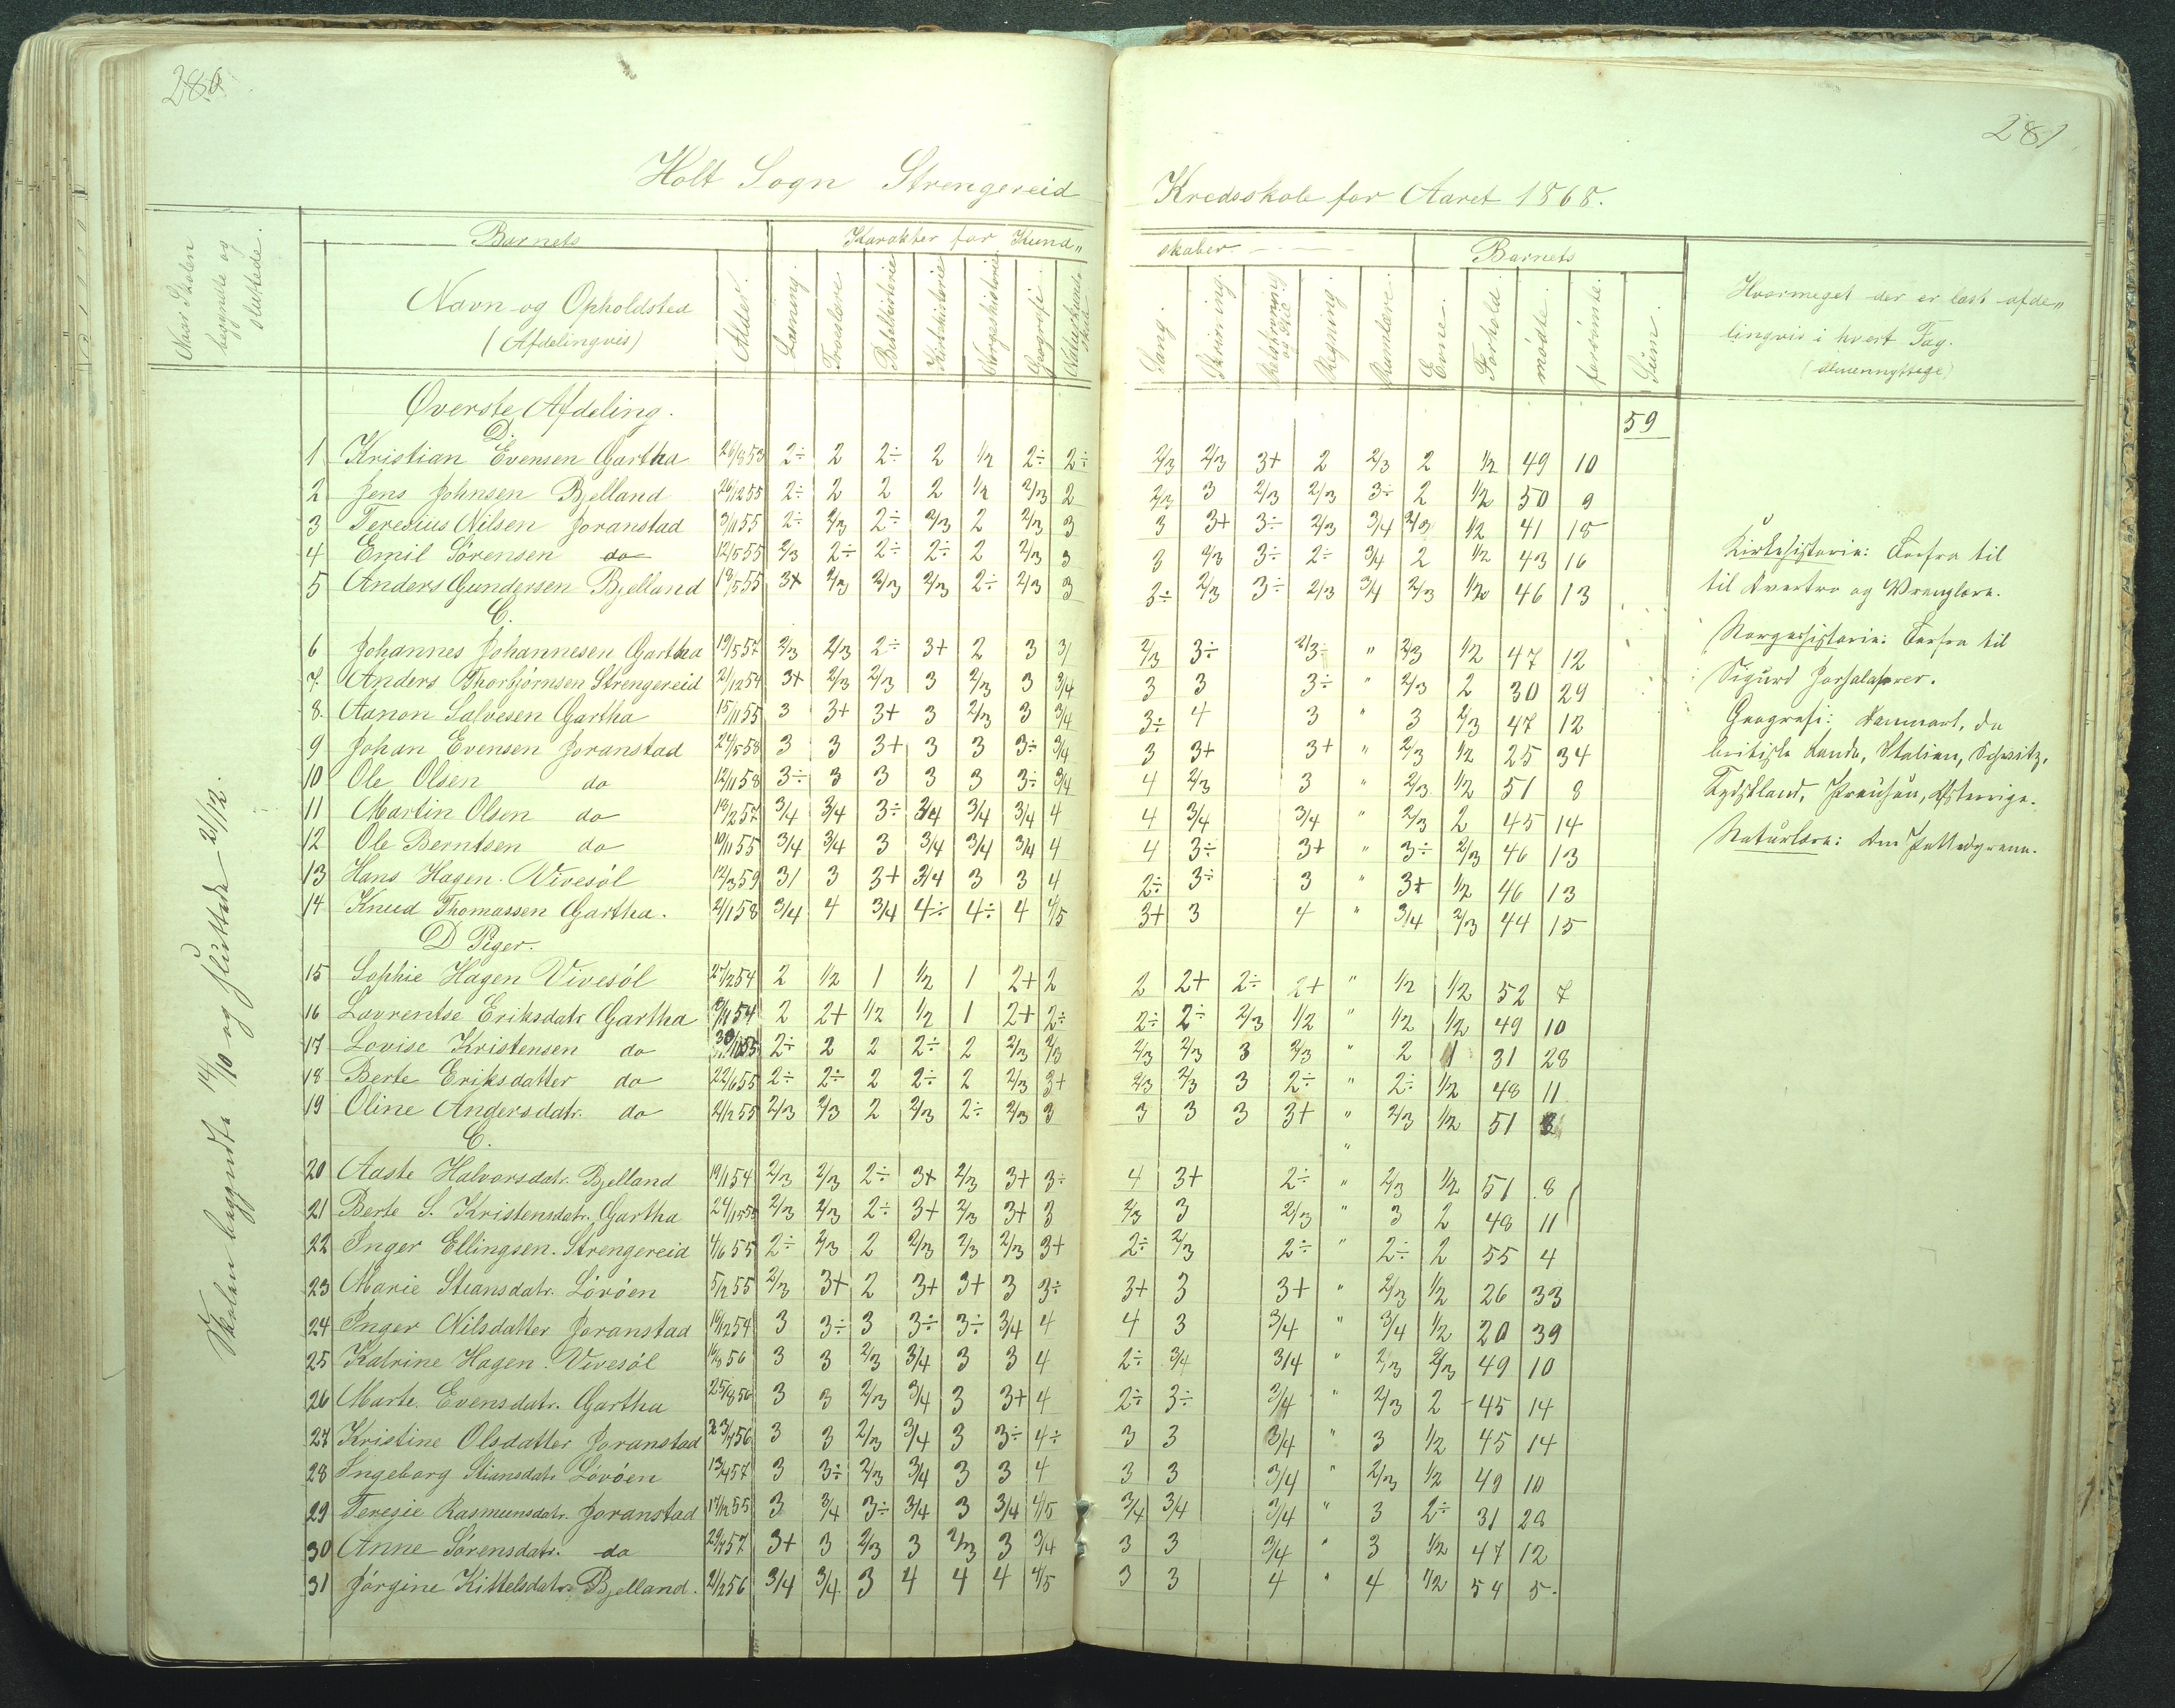 280
281
Holt Sogn Strengereid Kredsskole for Aaret 1868.
Naar Skolen begyndte og sluttede.
Barnets
Karakter for Kund„
skaber
Barnets
Hvormeget der er læst afde„
lingvis i hvert Fag.
(Navn og Opholdsted
(Afdelingvis)
Alder.
Læsning.
Troslære
Bibelhistorie
Kirkehistorie
Norgeshistorie
Geografi.
Naturkundskab
Sang.
Skrivning.
Retskrivning og Stil
Regning.
Rumlære.
Evne.
Forhold.
mødte.
forsömte.
Sum.
Øverste Afdeling.
59
D.
1 Kristian Evensen Gartha 26/8 53 2÷ 2 2÷ 2 1/2 2÷ 2÷ 2/3 2/3 3+ 2 2/3 2 1/2 49 10
2 Jens Johnsen Bjelland 26/12 55 2÷ 2 2 2 1/2 2/3 2 2/3 3 2/3 2/3 3÷ 2 1/2 50 9
3 Teresius Nilsen Joranstad 3/11 55 2÷ 2/3 2÷ 2/3 2 2/3 3 3 3+ 3÷ 2/3 3/4 2/3 1/2 41 18
4 Emil Sørensen do 12/5 55 2/3 2÷ 2÷ 2÷ 2 2/3 3 3 2/3 3÷ 2÷ 3/4 2 1/2 43 16
5 Anders Gundersen Bjelland 18/5 55 3+ 2/3 2/3 2/3 2÷ 2/3 3 3÷ 2/3 3÷ 2/3 3/4 2/3 1/2 46 13
C.
6 Johannes Johannesen Gartha 19/5 57 2/3 2/3 2÷ 3+ 2 3 3/ 2/3 3÷ 2/3÷ " 2/3 1/2 47 12
7. Anders Thorbjørnsen Strengereid 21/12 54 3+ 2/3 2/3 3 2/3 3 3/4 3 3 3÷ " 2/3 2 30 29
8. Aanon Salvesen Gartha 15/11 55 3 3+ 3+ 3 2/3 3 3/4 3÷ 4 3 " 3 2/3 47 12
9 Johan Evensen Joranstad 24/5 58 3 3 3+ 3 3 3÷ 3/4 3 3+ 3+ " 2/3 1/2 25 34
10 Ole Olsen do 12/11 58 3÷ 3 3 3 3 3÷ 3/4 4 2/3 3 " 2/3 1/2 51 8
11 Martin Olsen do 18/2 57 3/4 3/4 3÷ 3/4 3/4 3/4 4 4 3/4 3/4 " 2/3 2 45 14
12 Ole Berntsen do 10/11 55 3/4 3/4 3 3/4 3/4 3/4 4 4 3÷ 3+ " 3÷ 2/3 46 13
13 Hans Hagen. Vivesöl 12/3 59 3/ 3 3+ 3/4 3 3 4 2÷ 3÷ 3 " 3+ 1/2 46 13
14 Knud Thomassen Gartha. 2/1 58 3/4 4 3/4 4÷ 4÷ 4 4/5 3+ 3 4 " 3/4 2/3 44 15
D Piger.
15 Sophie Hagen Vivesöl 27/2 54 2 1/2 1 1/2 1 2+ 2 2 2+ 2÷ 2+ " 1/2 1/2 52 7
16 Lavrentse Eriksdatr Gartha 54 2 2+ 1/2 1/2 1 2+ 2÷ 2÷ 2÷ 2/3 1/2 " 1/2 1/2 49 10
17 Lovise Kristensen do 55 2÷ 2 2 2÷ 2 2/3 2/3 2/3 2/3 3 2/3 " 2 1 31 28
18 Berte Eriksdatter do 22/6 55 2÷ 2÷ 2 2÷ 2 2/3 3+ 2/3 2/3 3 2÷ " 2÷ 1/2 48 11
19 Oline Andersdatr. do 2/12 55 2/3 2/3 2 2/3 2÷ 2/3 3 3 3 3 3+ " 2/3 1/2 51 8
C.
20 Aaste Halvorsdatr. Bjelland 19/1 54 2/3 2/3 2÷ 3+ 2/3 3+ 3÷ 4 3+ 2÷ " 2/3 1/2 51 8
21 Berte S. Kristensdatr. Gartha 55 2/3 2/3 2÷ 3+ 2/3 3+ 3 2/3 3 2/3 " 3 2 48 11
22 Inger Ellingsen. Strengereid 4/6 55 2÷ 2/3 2 2/3 2/3 2/3 3+ 2÷ 2/3 2÷ " 2÷ 2 55 4
23 Marie Stiansdatr. Lövöen 5/12 55 2/3 3+ 2 3+ 3+ 3 3÷ 3+ 3 3+ " 2/3 1/2 26 33
24 Inger Nilsdatter Joranstad 18/12 54 3 3÷ 3 3÷ 3÷ 3/4 4 4 3 3/4 " 3/4 1/2 20 39
25 Katrine Hagen. Vivesöl 56 3 3 2/3 3/4 3 3 4 2÷ 3/4 3/4 " 2/3 2/3 49 10
26 Marte Evensdatr. Gartha 25/8 56 3 3 2/3 3/4 3 3+ 4 2÷ 3÷ 3/4 " 2/3 2 45 14
27 Kristine Olsdatter Joranstad 56 3 3 2/3 3/4 3 3÷ 4÷ 3 3 3/4 " 3 1/2 45 14
28 Ingeborg Stiansdatr Lövöen 13/4 57 3 3÷ 2/3 3/4 3 3 4 3 3 3/4 " 2/3 1/2 49 10
29 Teresie Rasmunsdatr. Joranstad 17/12 55 3 3/4 3÷ 3/4 3 3/4 4/5 3/4 3/4 3/4 " 3 2÷ 31 28
30 Anne Sörensdatr. do 57 3+ 3 2/3 3 2/3 3 3/4 3 3 3/4 " 3 1/2 47 12
31 Jörgine Kittelsdatr. Bjelland. 2/12 56 3/4 3/4 3 4 4 4 4/5 3 3 4 " 4 1/2 54 5.
Skolen begyndte 14/10 og sluttede 21/12.
Kirkehistorie: Forfra til
til Overtro og Vranglære.
Norgeshistorie: Forfra til
Sigurd Jorsalafarer.
Geografi: Danmark, de
britiske Lande, Italien, Schweitz,
Tydskland, Preusen, Østerrige.
Naturlære: Om Pattedyrene.